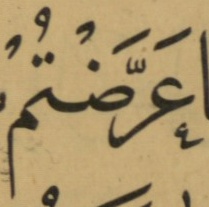 ا عَرَّضْتُمُ